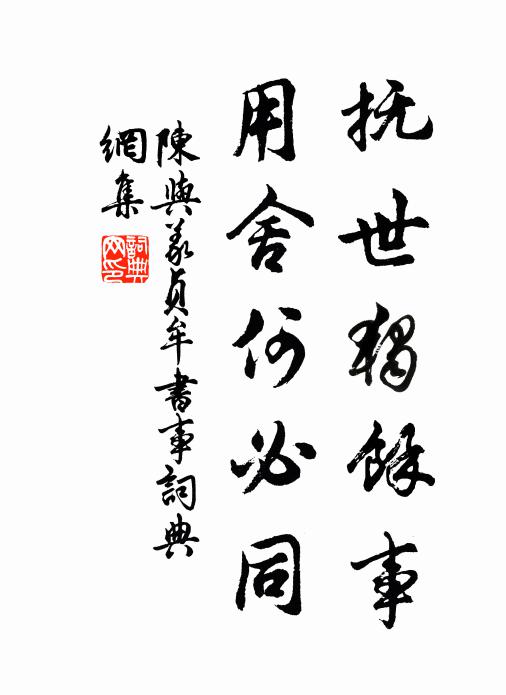 抚世独餘事
用舍何必同
陳與義貞牟書事詞典
網集
詞典
网印